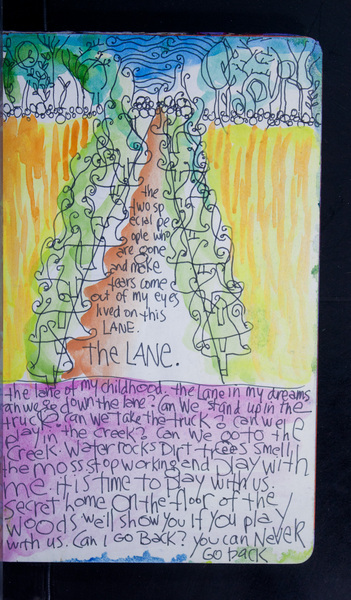 the
two sp
ecial pe
ople who
are gone
and make
tears come
out of my eyes
lived on this
LANE.
the LANE.
the lane of my childhood. the Lane in my dreams
can we go down the lane? can we stand up in the
truck? can we take the truck? can we
play in the creek? Can We Go to the
creek. Water rocks Dirt trees smell
the moss stop working and play with
me. it is time to Play with us
secret home On the floor of the
woods we'll show you If you play
with us. Can I Go Back? you can Never
Go back